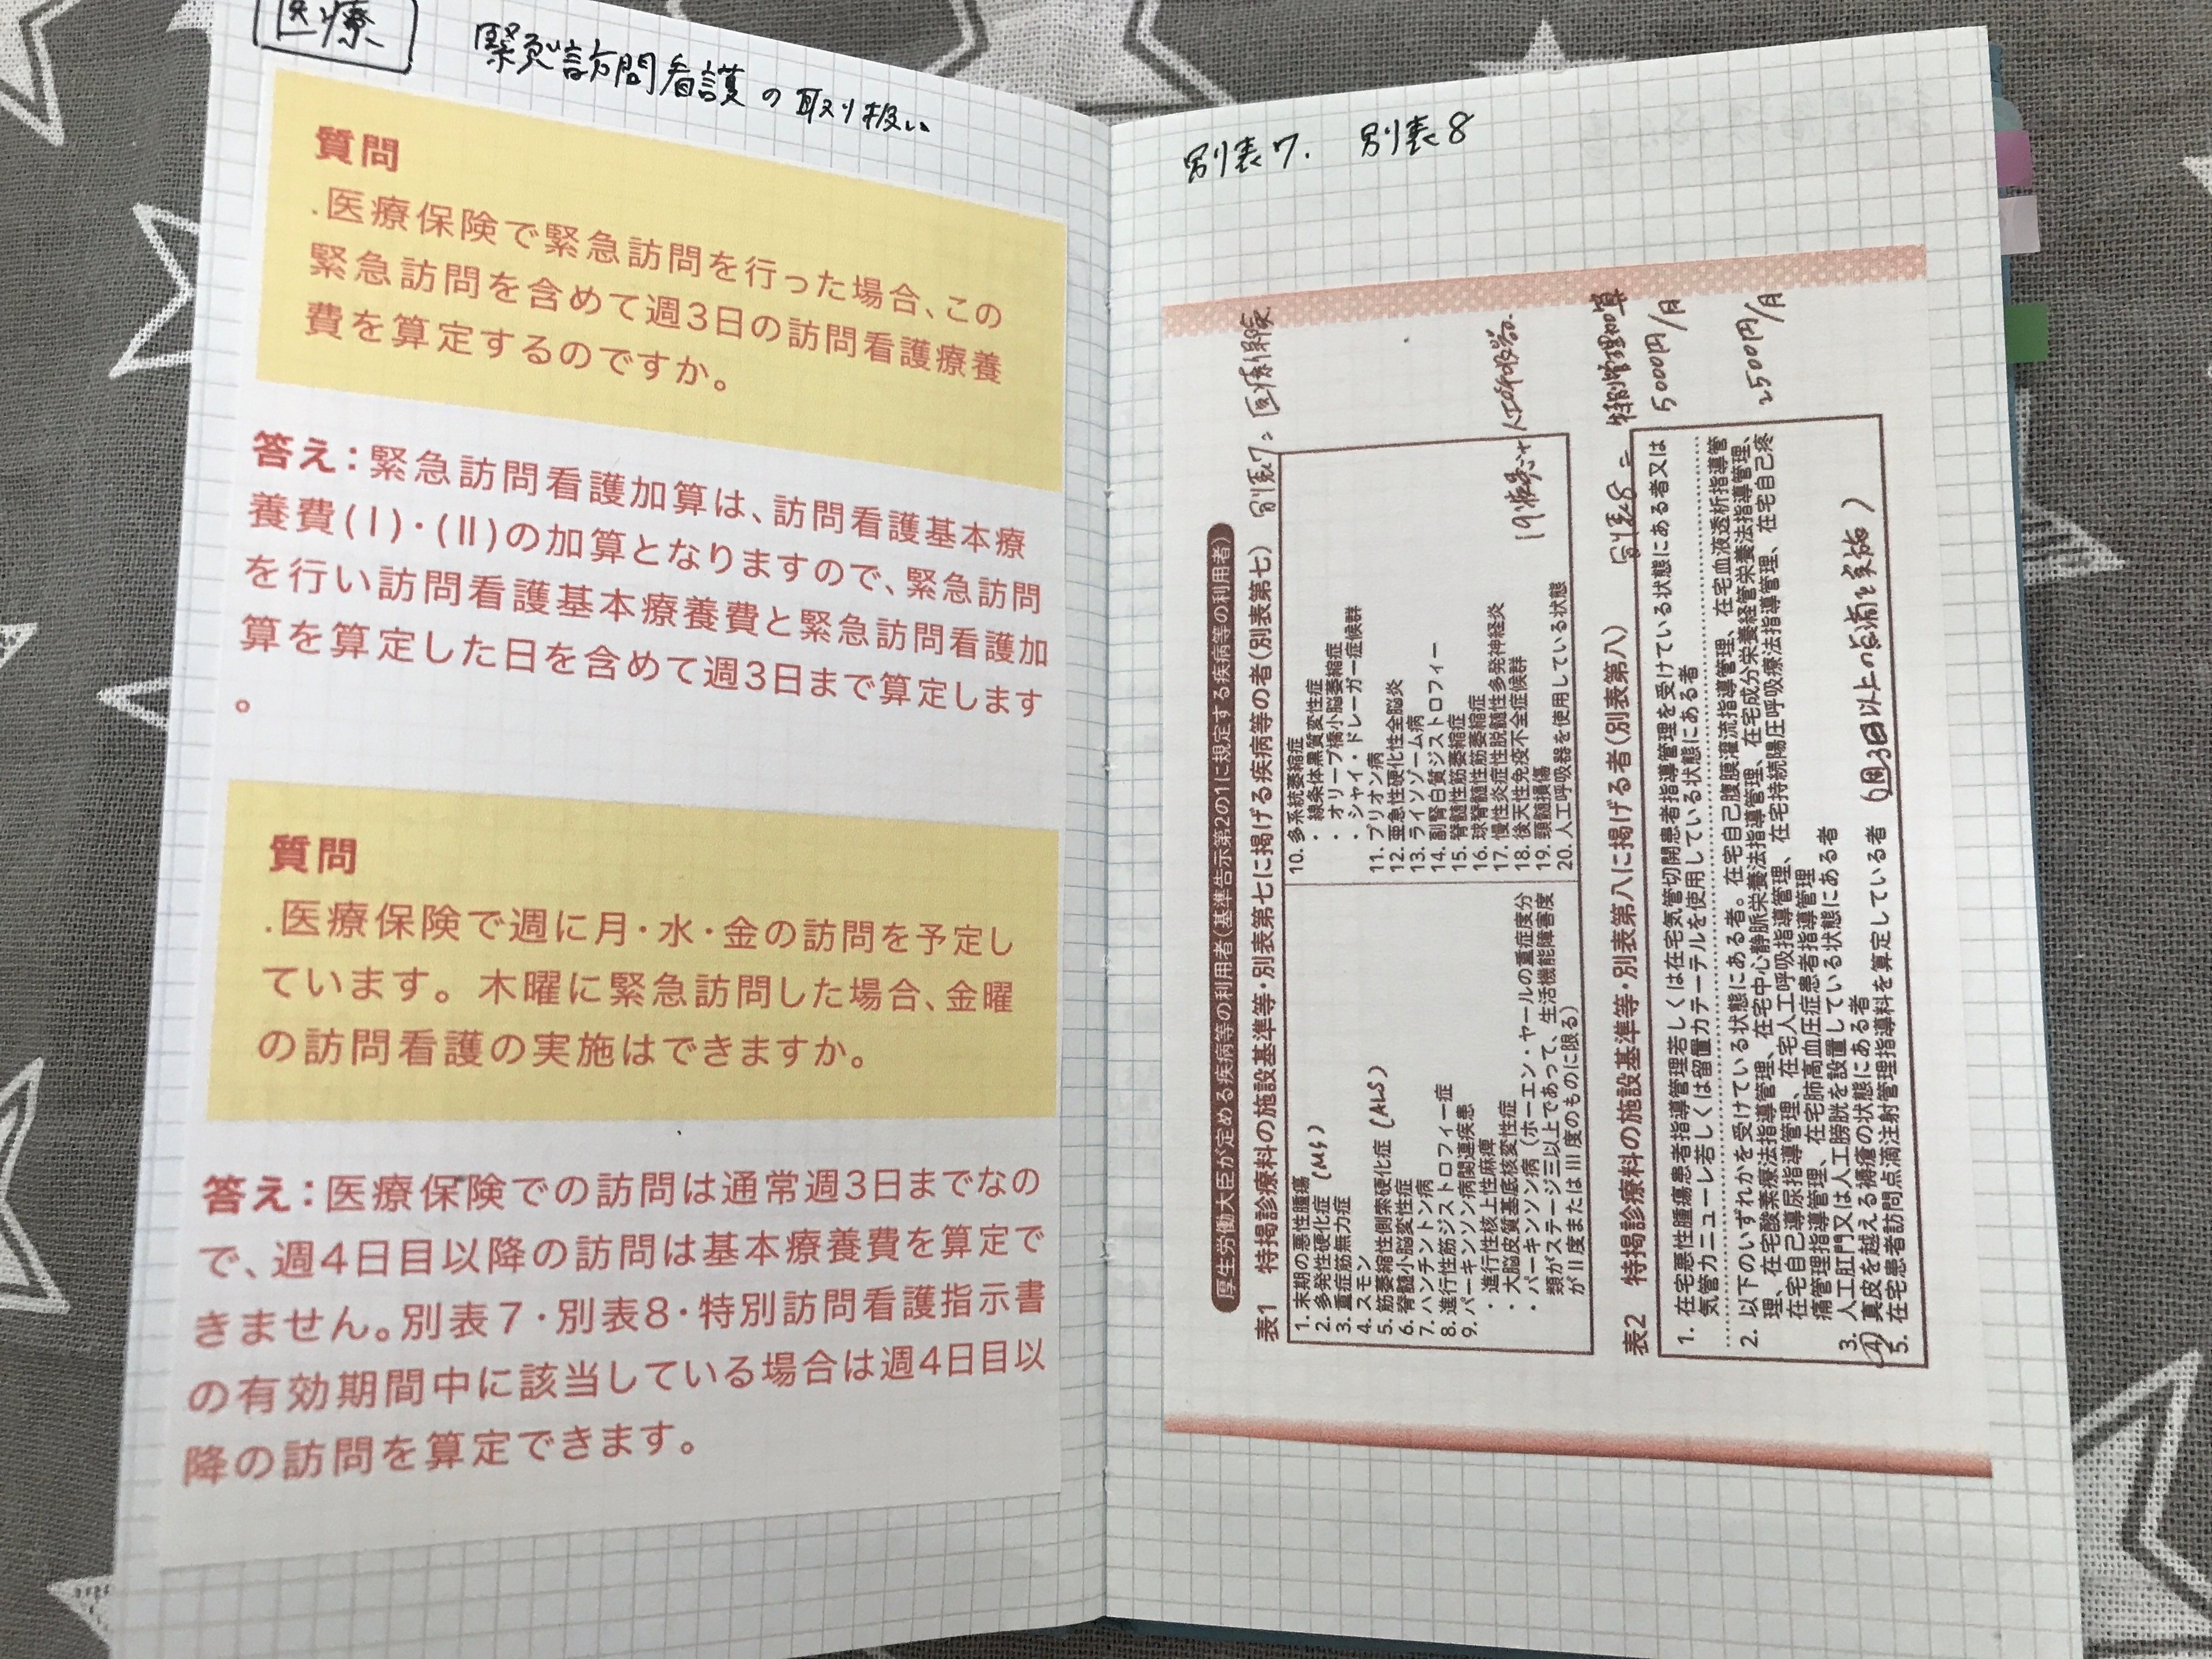 医療
緊急訪問看護の取り扱い
質問
.医療保険で緊急訪問を行った場合、この
緊急訪問を含めて週3日の訪問看護療養
費を算定するのですか。
答え：緊急訪問看護加算は、訪問看護基本療
養費(Ⅰ)・(Ⅱ)の加算となりますので、緊急訪問
を行い訪問看護基本療養費と緊急訪問看護加
算を算定した日を含めて週3日まで算定します
。
質問
.医療保険で週に月・水・金の訪問を予定し
ています。木曜に緊急訪問した場合、金曜
の訪問看護の実施はできますか。
答え：医療保険での訪問は通常週3日までなの
で、週4日目以降の訪問は基本療養費を算定で
きません。別表7・別表8・特別訪問看護指示書
の有効期間中に該当している場合は週4日目以
降の訪問を算定できます。
別表7. 別表8
厚生労働大臣が定める疾病等の利用者(基準告示第2の1に規定する疾病等の利用者)
表1 特掲診療料の施設基準等・別表第七に掲げる疾病等の者(別表第七) 別表7= 医療保険
1. 末期の悪性腫瘍
2. 多発性硬化症 (MS)
3. 重症筋無力症
4. スモン
5. 筋萎縮性側索硬化症 (ALS)
6. 脊髄小脳変性症
7. ハンチントン病
8. 進行性筋ジストロフィー症
9. パーキンソン病関連疾患
・進行性核上性麻痺
・大脳皮質基底核変性症
・パーキンソン病(ホーエン・ヤールの重症度分
類がステージ三以上であって、生活機能障害度
がⅡ度またはⅢ度のものに限る)
10. 多系統萎縮症
・線条体黒質変性症
・オリーブ橋小脳萎縮症
・シャイ・ドレーガー症候群
11. プリオン病
12. 亜急性硬化性全脳炎
13. ライソゾーム病
14. 副腎白質ジストロフィー
15. 脊髄性筋萎縮症
16. 球脊髄性筋萎縮症
17. 慢性炎症性脱髄性多発神経炎
18. 後天性免疫不全症候群
19. 頸髄損傷
20. 人工呼吸器を使用している状態
19疾患+人工呼吸器.
表2 特掲診療料の施設基準等・別表第八に掲げる者(別表第八) 別表8= 特別管理加算
1. 在宅悪性腫瘍患者指導管理若しくは在宅気管切開患者指導管理を受けている状態にある者又は 5000円/月
気管カニューレ若しくは留置カテーテルを使用している状態にある者
2. 以下のいずれかを受けている状態にある者。在宅自己腹膜灌流指導管理、在宅血液透析指導管 2500円/月
理、在宅酸素療法指導管理、在宅中心静脈栄養法指導管理、在宅成分栄養経管栄養法指導管理、
在宅自己導尿指導管理、在宅人工呼吸指導管理、在宅持続陽圧呼吸療法指導管理、在宅自己疼
痛管理指導管理、在宅肺高血圧症患者指導管理
3. 人工肛門又は人工膀胱を設置している状態にある者
4. 真皮を越える褥瘡の状態にある者
5. 在宅患者訪問点滴注射管理指導料を算定している者 (週3日以上の点滴を実施)